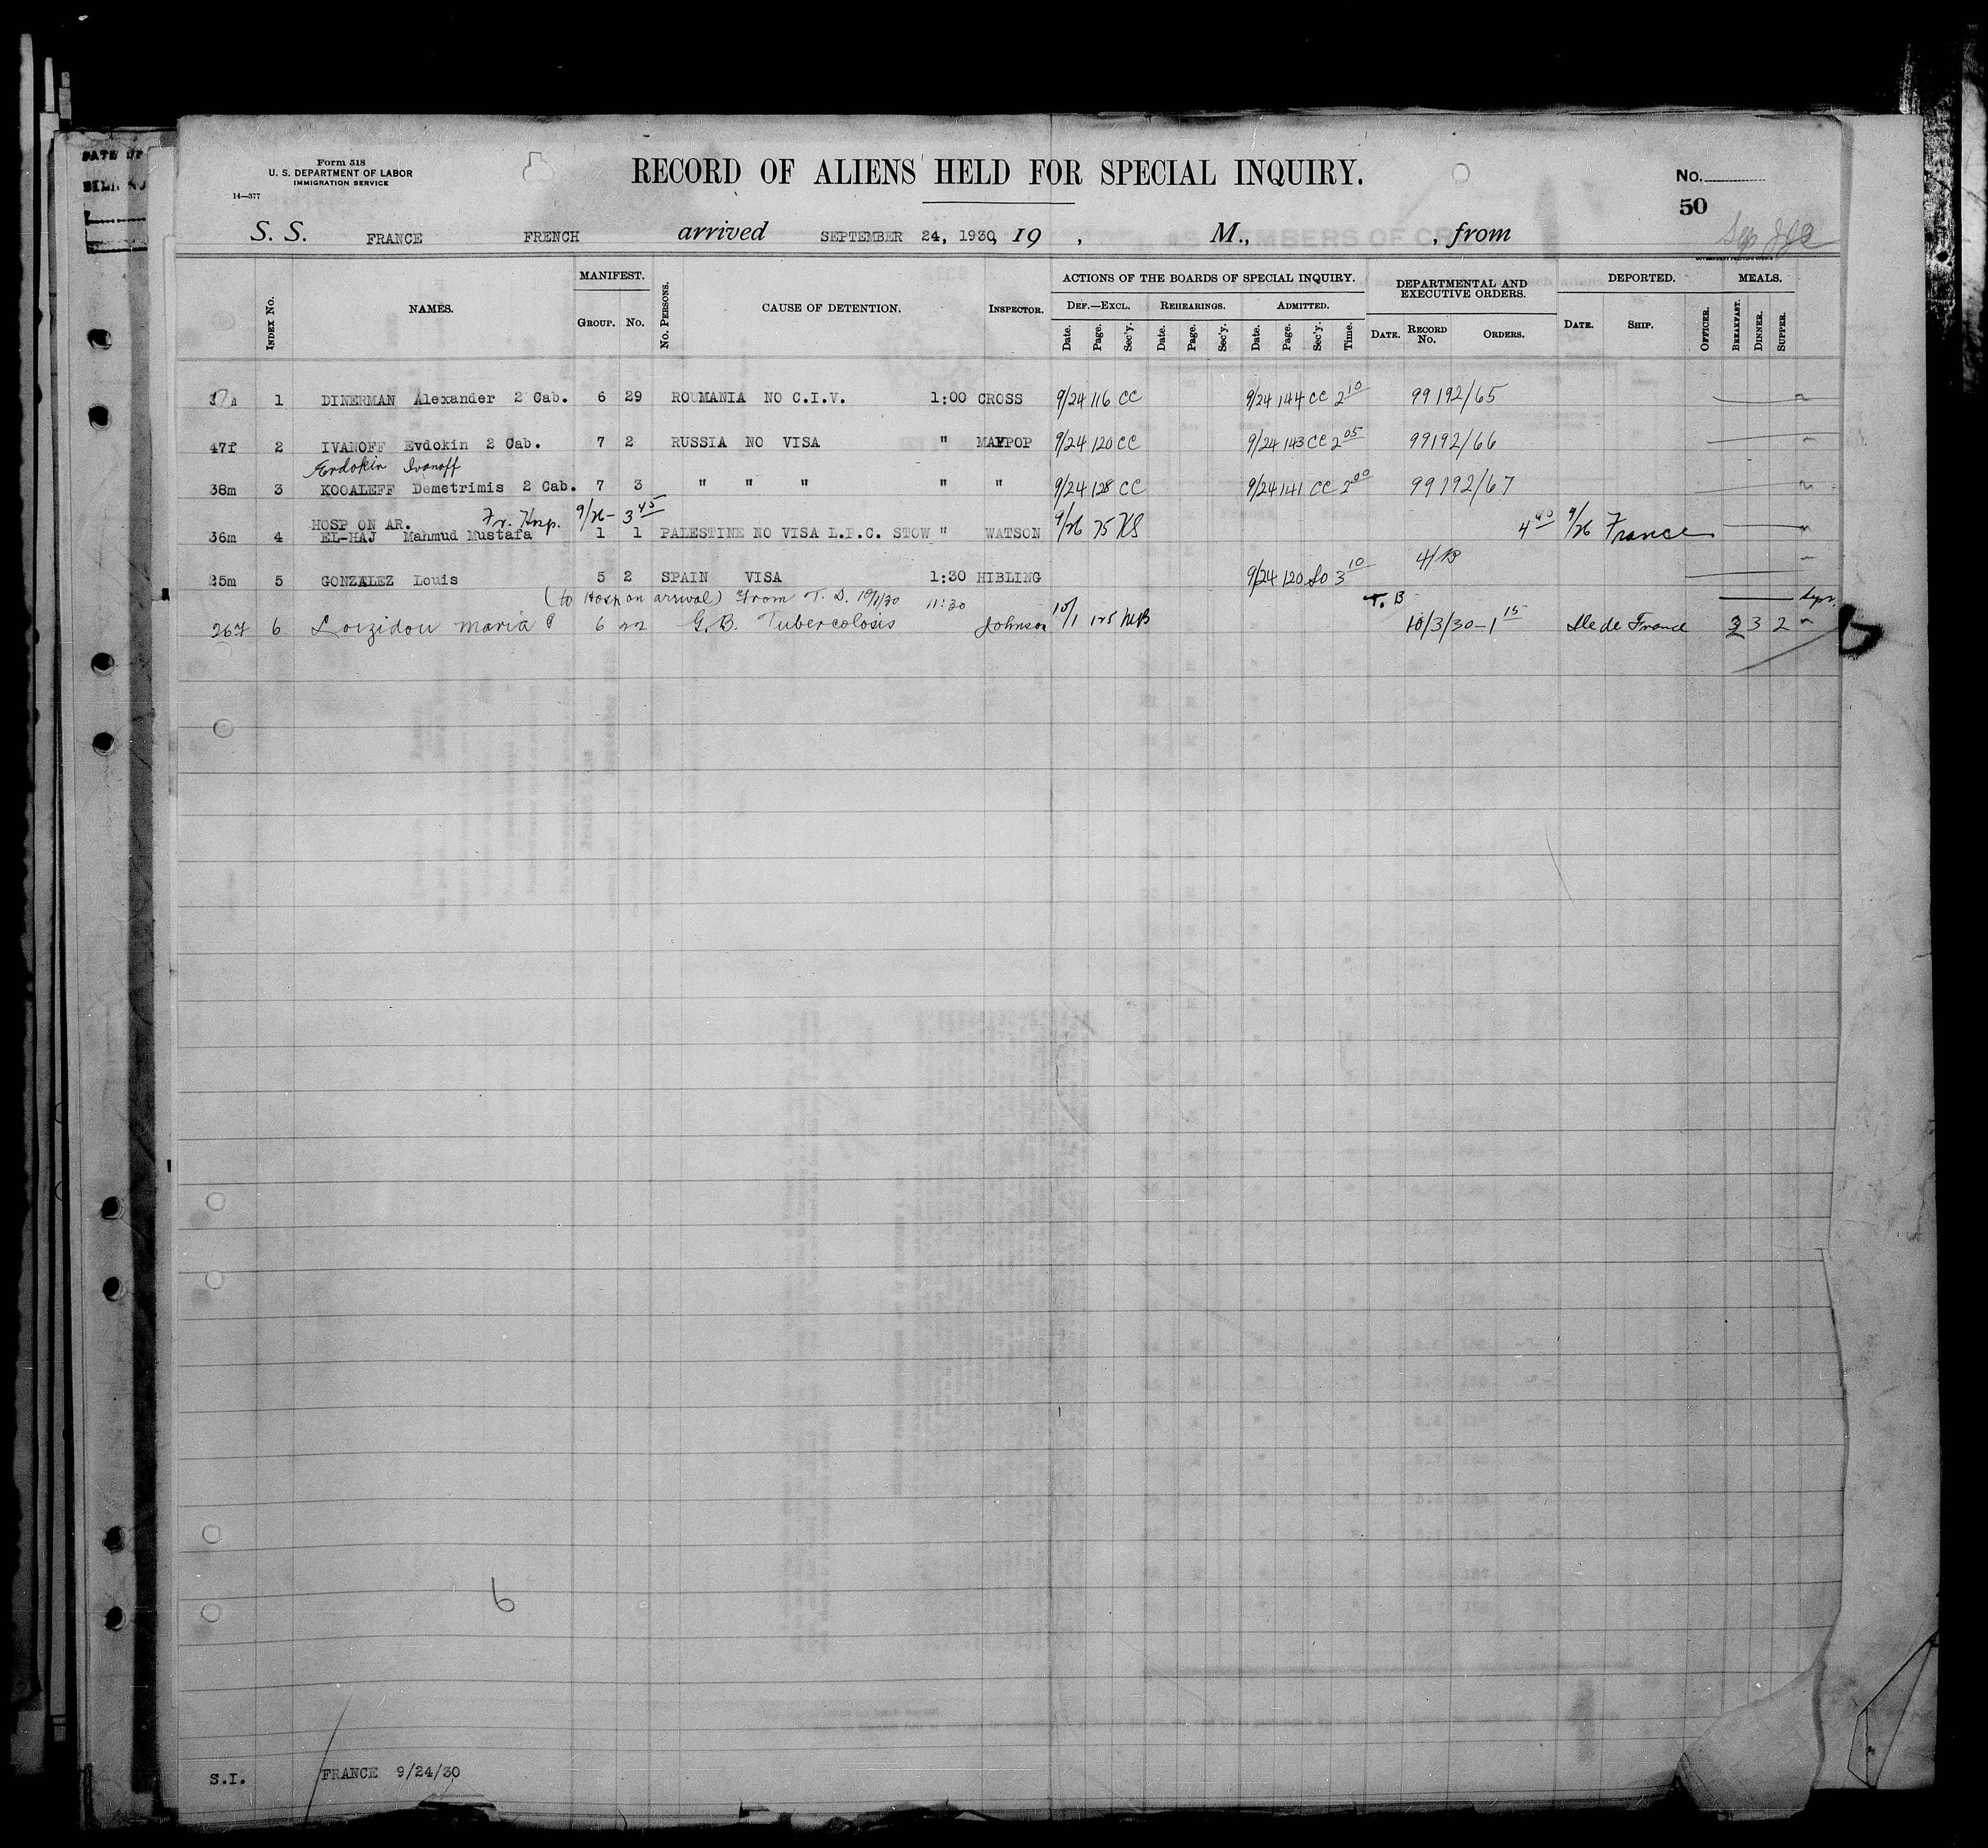 DATE OF
Form 518
U. S. DEPARTMENT OF LABOR
IMMIGRATION SERVICE
14—377
RECORD OF ALIENS HELD FOR SPECIAL INQUIRY.
No.
50
S. S. FRANCE FRENCH arrived SEPTEMBER 24, 1930, 19 , M., , from
GOVERNMENT PRINTING OFFICE
INDEX No. NAMES. MANIFEST. GROUP. No. No. PERSONS. CAUSE OF DETENTION. INSPECTOR. ACTIONS OF THE BOARDS OF SPECIAL INQUIRY. DEF.—EXCL. Date. Page. Sec'y. REHEARINGS. Date. Page. Sec'y. ADMITTED. Date. Page. Sec'y. Time. DEPARTMENTAL AND EXECUTIVE ORDERS. DATE. RECORD No. ORDERS. DEPORTED. DATE. SHIP. OFFICER. MEALS. BREAKFAST. DINNER. SUPPER.
1 DINERMAN Alexander 2 Cab. 6 29 ROUMANIA NO C.I.V. 1:00 CROSS 9/24 116 CC 9/24 144 CC 2 10 99192/65
47f 2 IVANOFF Evdokin 2 Cab. 7 2 RUSSIA NO VISA " MAYPOP 9/24 120 CC 9/24 143 CC 2 05 99192/66
Evdokin Ivanoff
38m 3 KOOALEFF Demetrimis 2 Cab. 7 3 " " " " " 9/24 128 CC 9/24 141 CC 2 00 99192/67
HOSP ON AR. Fr. Hosp. 9/26 - 3 45
36m 4 EL-HAJ Mahmud Mustafa 1 1 PALESTINE NO VISA L.P.C. STOW " WATSON 9/26 75 KS 4 40 9/26 France
25m 5 GONZALEZ Louis 5 2 SPAIN VISA 1:30 HIBLING 9/24 120 So 3 10
(to Hosp on arrival) From T. D. 10/1/30 11:30 T. B
26f 6 Loizidou Maria 6 22 G.B. Tubercolosis Johnson 10/1 125 MB 10/3/30-1 15 Ile de France 3 3 2
6
S.I. FRANCE 9/24/30